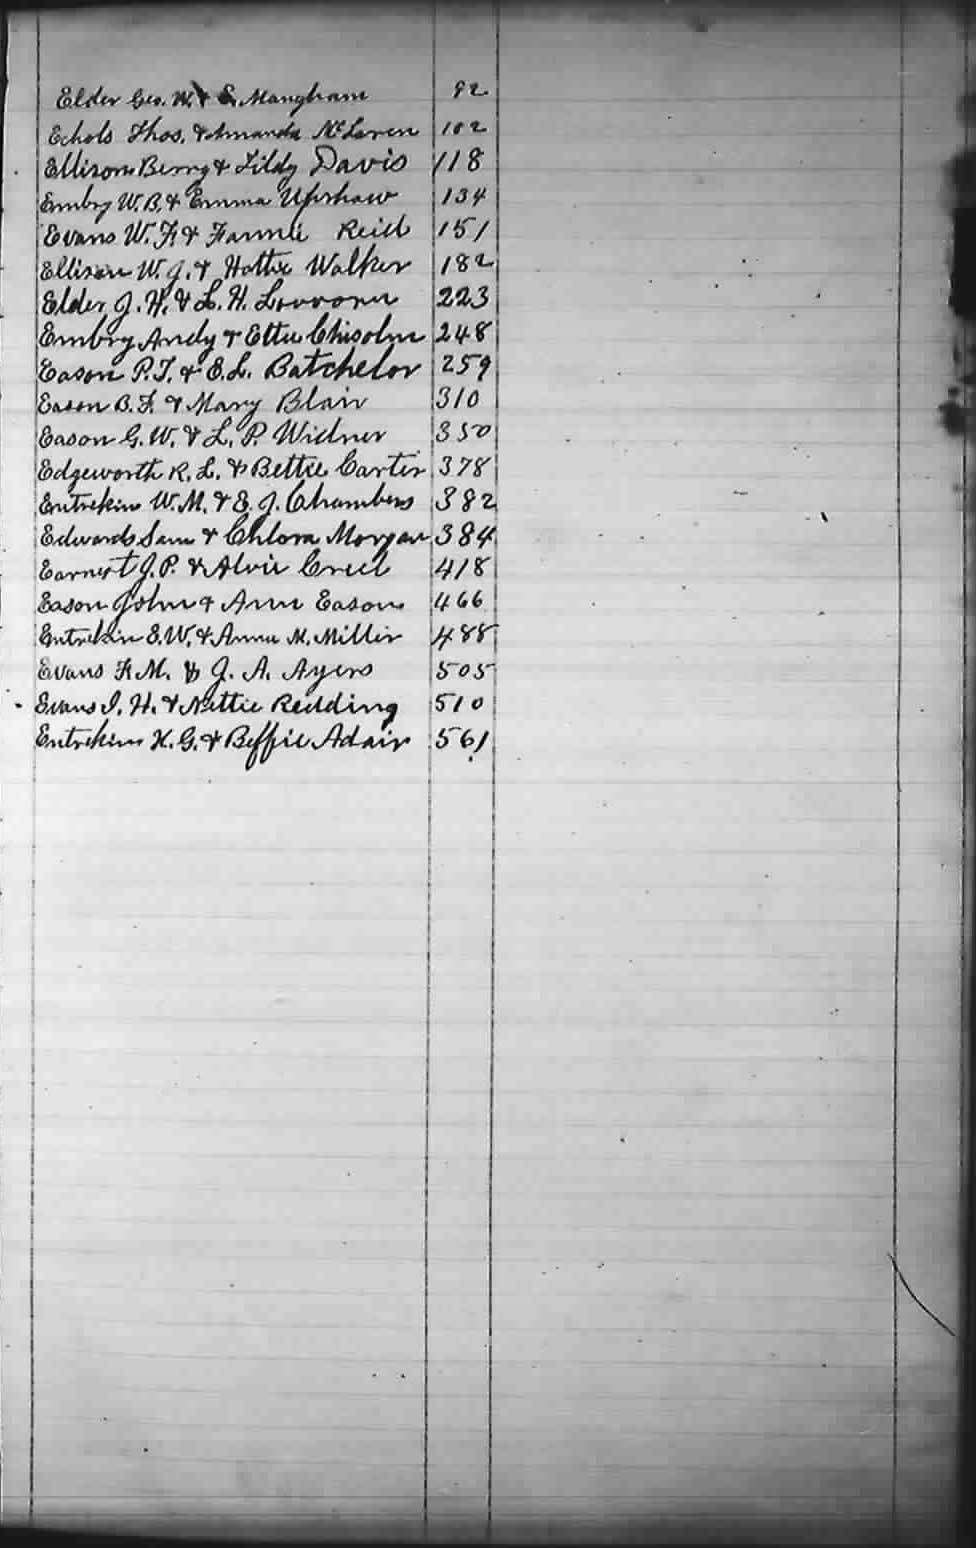 Elder Geo. W. & E. Mangham 92
Echols Thos. & Amanda McLaren 102
Ellison Berry & Tildy Davis 118
Embry W. B. & Emma Upshaw 134
Evans W. F. & Fannie Reid 151
Ellison W. J. & Hattie Walker 182
Elder J. H. & L. H. Lovvorn 223
Embry Andy & Ettie Chisolm 248
Eason P. T. & E. L. Batchelor 259
Eason B. F. & Mary Blair 310
Eason G. W. & L. P. Widner 350
Edgeworth R. L. & Bettie Carter 378
Entrekin W. M. & E. J. Chambers 382
Edwards Sam & Chlora Morgan 384
Earnest J. P. & Alvie Creel 418
Eason John & Ann Eason 466
Entrekin E. W. & Anna M. Miller 488
Evans F. M. & J. A. Ayers 505
Evans I. H. & Nettie Redding 510
Entrekin H. G. & Adair 561